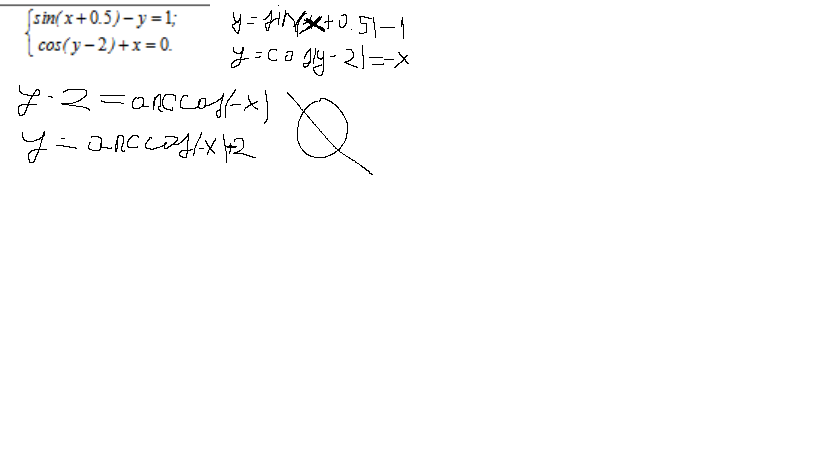 sin(x+0.5)−y=1;
cos(y−2)+x=0.
y=sin(x+0.5)−1
y=cos(y-2)=-x
y-2=arccos(-x)
y=arccos(-x)+2